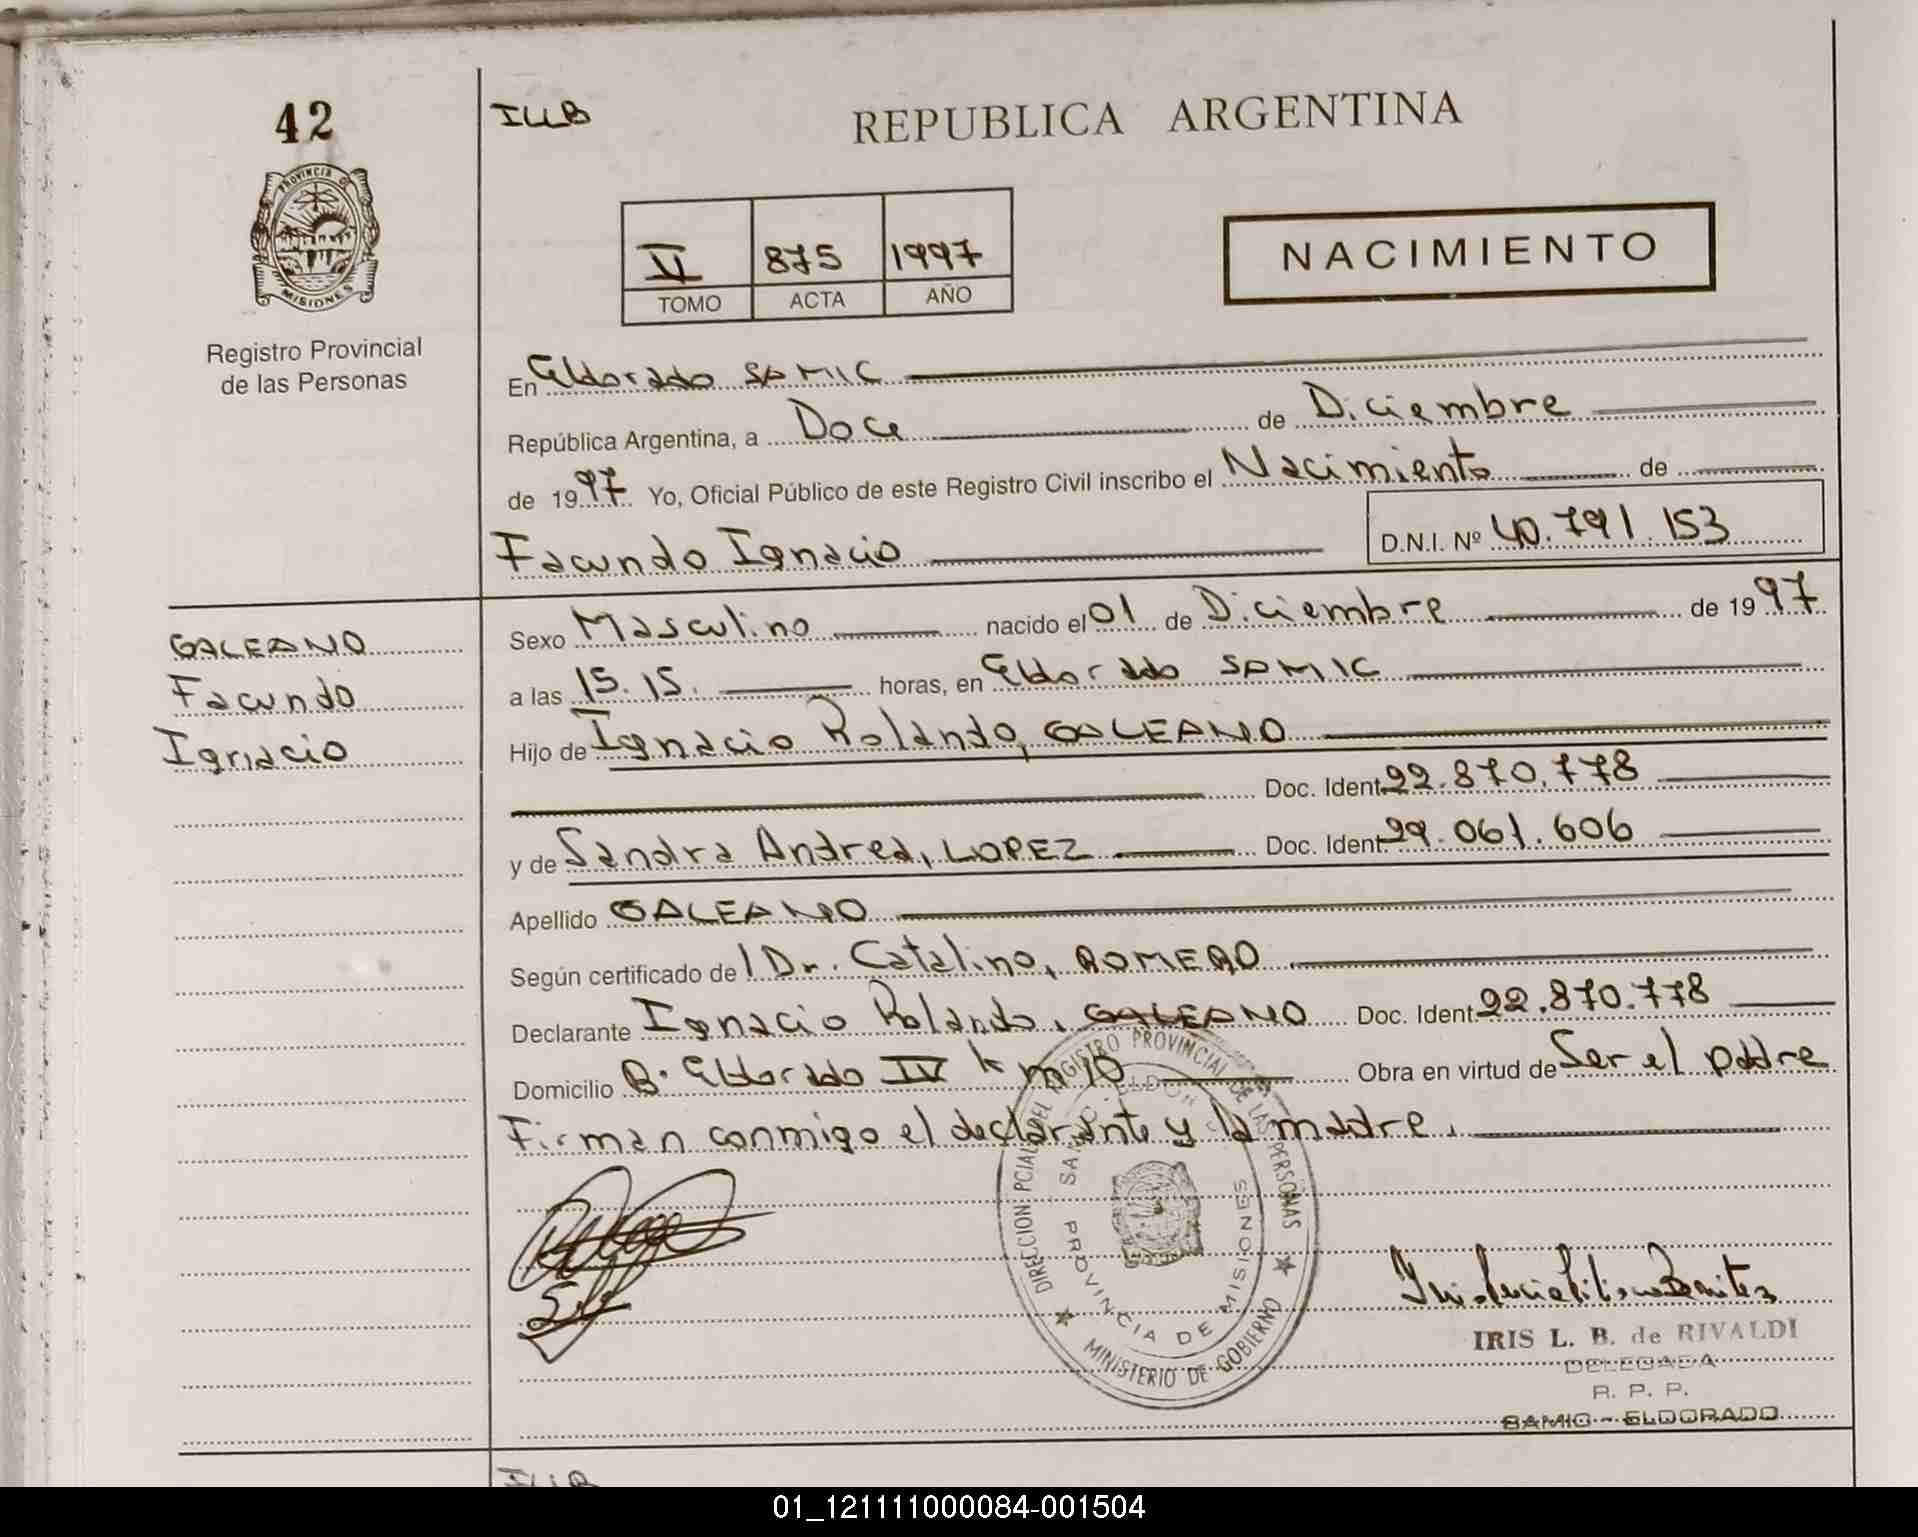 42
ILLB
REPUBLICA ARGENTINA
PROVINCIA DE
MISIONES
Registro Provincial
de las Personas
V 875 1997
TOMO ACTA AÑO
NACIMIENTO
En Eldorado SAMIC
República Argentina, a Doce de Diciembre
de 1997 Yo, Oficial Público de este Registro Civil inscribo el Nacimiento de
Facundo Ignacio D.N.I. Nº 40.791.153
GALEANO
Facundo
Ignacio
Sexo Masculino nacido el 01 de Diciembre de 1997
a las 15.15. horas, en Eldorado SAMIC
Hijo de Ignacio Rolando, GALEANO
Doc. Ident 22.870.778
y de Sandra Andrea, LOPEZ Doc. Ident 29.061.606
Apellido GALEANO
Según certificado del Dr. Catalino, ROMERO
Declarante Ignacio Rolando, GALEANO Doc. Ident. 22.870.778
Domicilio B. Eldorado IV km 10 Obra en virtud de Ser el padre
Firman conmigo el declarante y la madre.
DIRECCION PCIAL DEL REGISTRO PROVINCIAL DE LAS PERSONAS
MINISTERIO DE GOBIERNO
PROVINCIA DE MISIONES
IRIS L. B. de RIVALDI
DELEGADA
R. P. P.
SAMIC - ELDORADO
ILLB
01_121111000084-001504